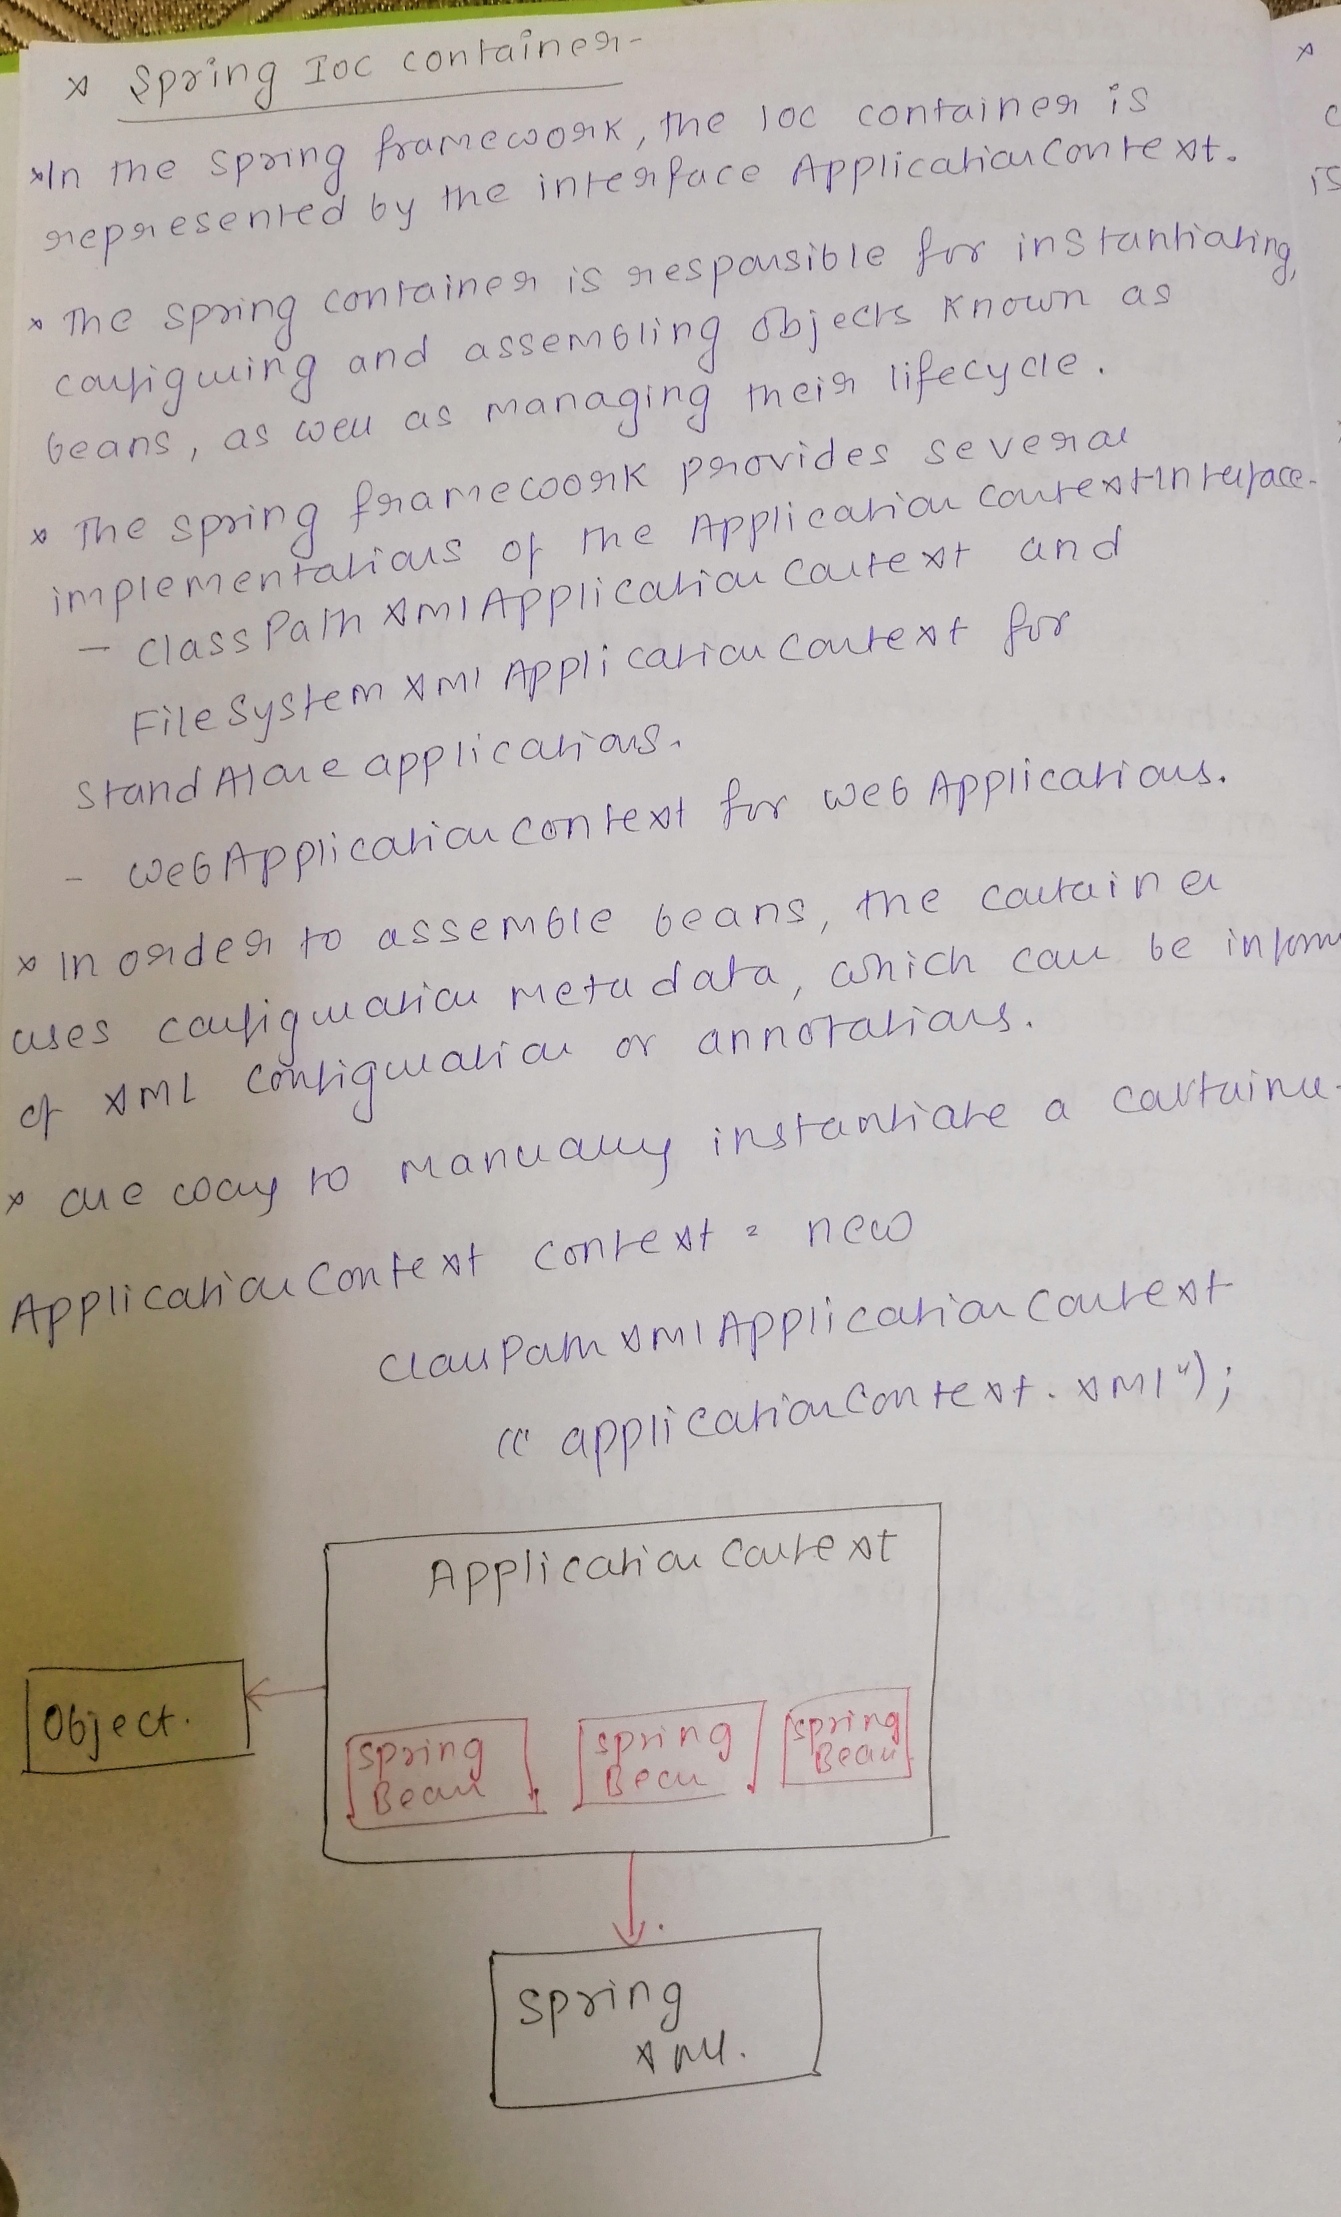 * Spring IOC container-
*In the spring framework, the IOC container is
represented by the interface ApplicationContext.
* The spring container is responsible for instantiating,
configuring and assembling objects known as
beans, as well as managing their lifecycle.
* The spring framework provides several
implementations of the Application context interface.
- ClassPath XmlApplication context and
FileSystem Xml Application Context for
Stand Alone applications.
- WebApplication context for web Applications.
* In order to assemble beans, the container
uses configuration meta data, which can be in form
of XML configuration or annotations.
* one way to manually instantiate a container-
ApplicationContext context = new
ClassPath XmlApplicationContext
(" applicationContext.xml");
Application Context
Object.
Spring
Bean
Spring
Bean
Spring
Bean
Spring
XML.
*
c
is